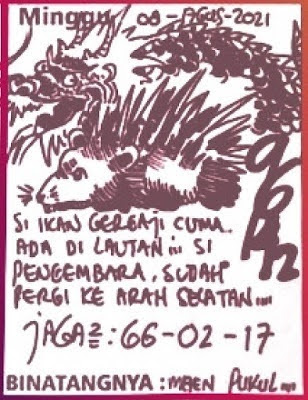 Minggu 08 - AGUS - 2021
SI IKAN GERGAJI CUMA.
ADA DI LAUTAN... SI
PENGEMBARA. SUDAH
PERGI KE ARAH SELATAN....
JAGA²=: 66-02-17
BINATANGNYA : MAEN PUKUL...